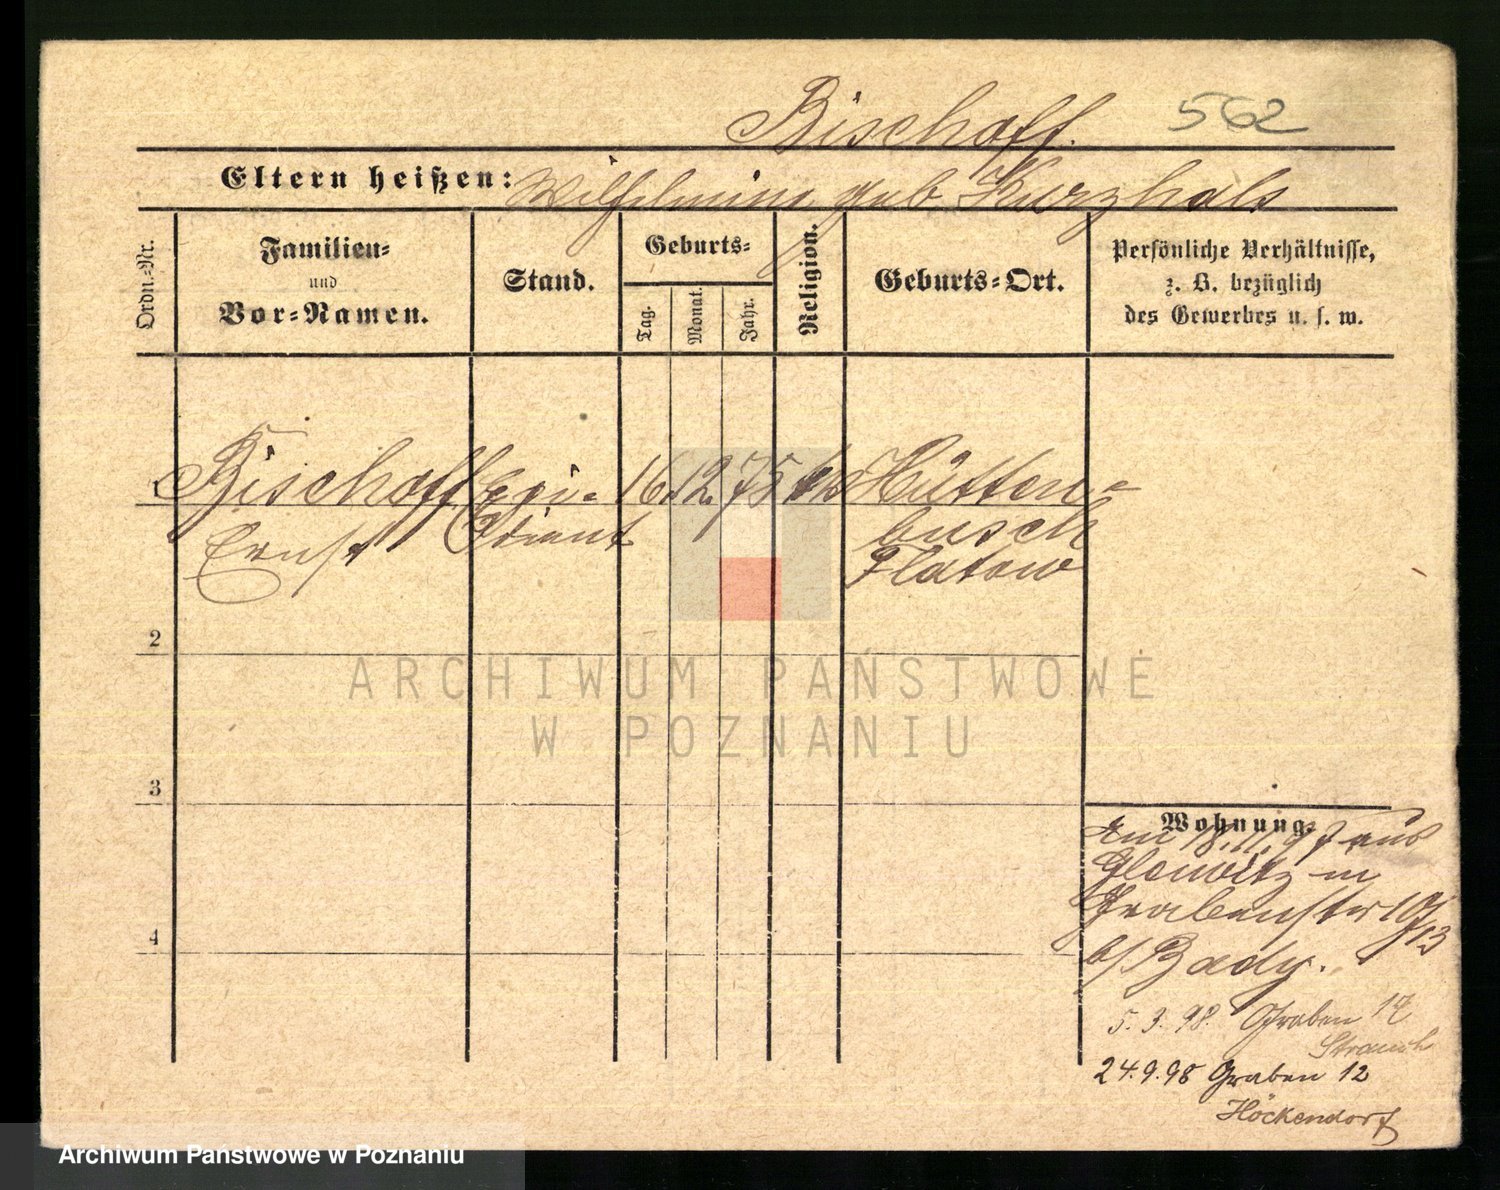 Bischoff. 562
Eltern heißen: Wilhelmine geb Kurzhals
Ordn.-Nr.
Familien-
und
Vor-Namen.
Stand.
Geburts-
Tag.
Monat.
Jahr.
Religion.
Geburts-Ort.
Persönliche Verhältnisse,
z. B. bezüglich
des Gewerbes u. s. w.
1 Bischoff Expe- 16. 12. 75 Hütten-
Ernst dient busch
Flatow
2
3
4
Wohnung.
Am 18.11.97 aus
in
Grabenstr
b/ Bady.
5. 3. 98. Graben
Strauch
24.9.98 Graben 12
Höckendorf
ARCHIWUM PAŃSTWOWE
W POZNANIU
Archiwum Państwowe w Poznaniu